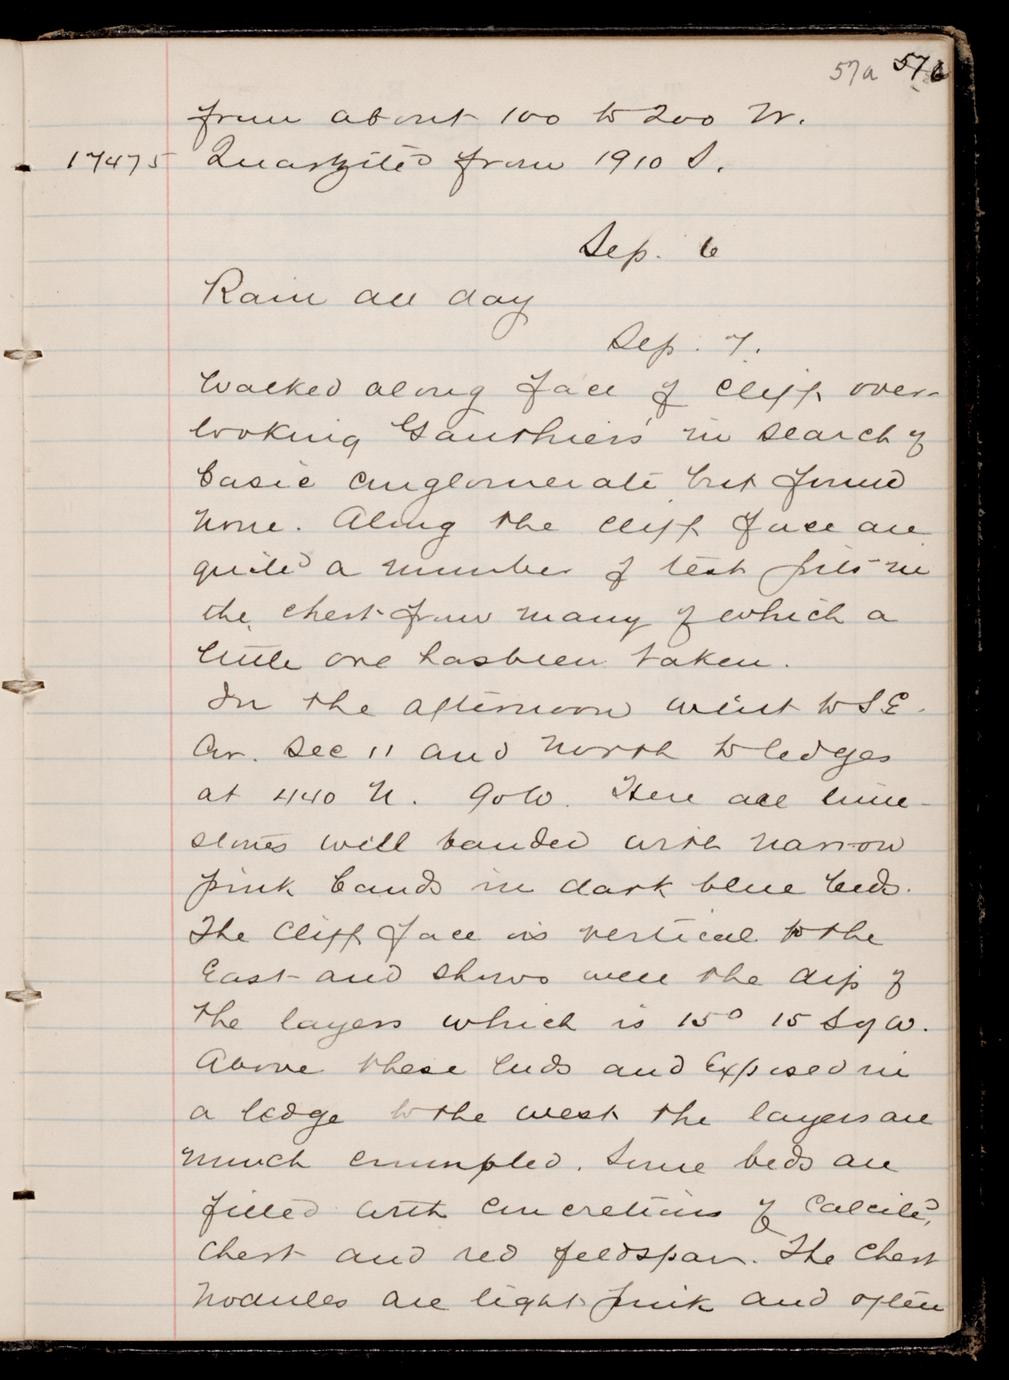 57a 57b
from about 100 to 200 W.
17475 Quartzite from 1910 S.
Sep. 6
Rain all day
Sep. 7.
Walked along face of cliff over-
looking Gauthiers' in search of
basic conglomerate but found
none. Along the cliff face are
quite a number of test pits in
the chert from many of which a
little ore has been taken.
In the afternoon went to S.E.
Cor. Sec 11 and north to ledges
at 440 N. 90 W. Here are lime-
stones well banded with narrow
pink bands in dark blue beds.
The cliff face is vertical to the
East and shows well the dip of
the layers which is 15° 15 S of W.
Above these beds and exposed in
a ledge to the west the layers are
much crumpled. Some beds are
filled with concretions of calcite,
chert and red feldspar. The chert
nodules are light pink and often